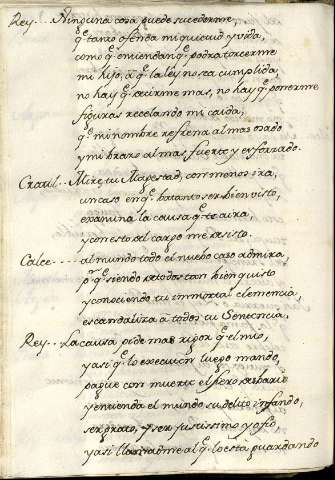 Rey... Ninguna cosa puede sucederme,
q̃ tanto ofenda mi quietud, y vida,
como q̃ entiendan q̃ podra torcerme
mi hijo, â q̃ la ley no sea cumplida,
no hay q̃ decirme mas, no hay q̃ ponerme
figuras recelando mi caida,
q̃ mi nombre refrena al mas osado
y mi brazo al mas fuerte y esforzado.
Cratil.. Mire tu Magestad, con menos ira,
un caso en q̃ ha tanto ser bien visto,
examina la causa q̃ te aira,
y con esto del cargo me desisto.
Calce.... al mundo todo el nuebo caso admira
pr q̃ siendo de todos tan bien quisto
y conociendo tu inmortal clemencia,
escandaliza â todos tu Sentencia,
Rey... La causa pide mas rigor q̃ el mio,
y asi q̃ lo executen luego mando,
pague con muerte el fiero
y entienda el mundo su delito infando,
ser grato, y ser justissimo y pio,
y asi llamadme al q̃ lo està guardando